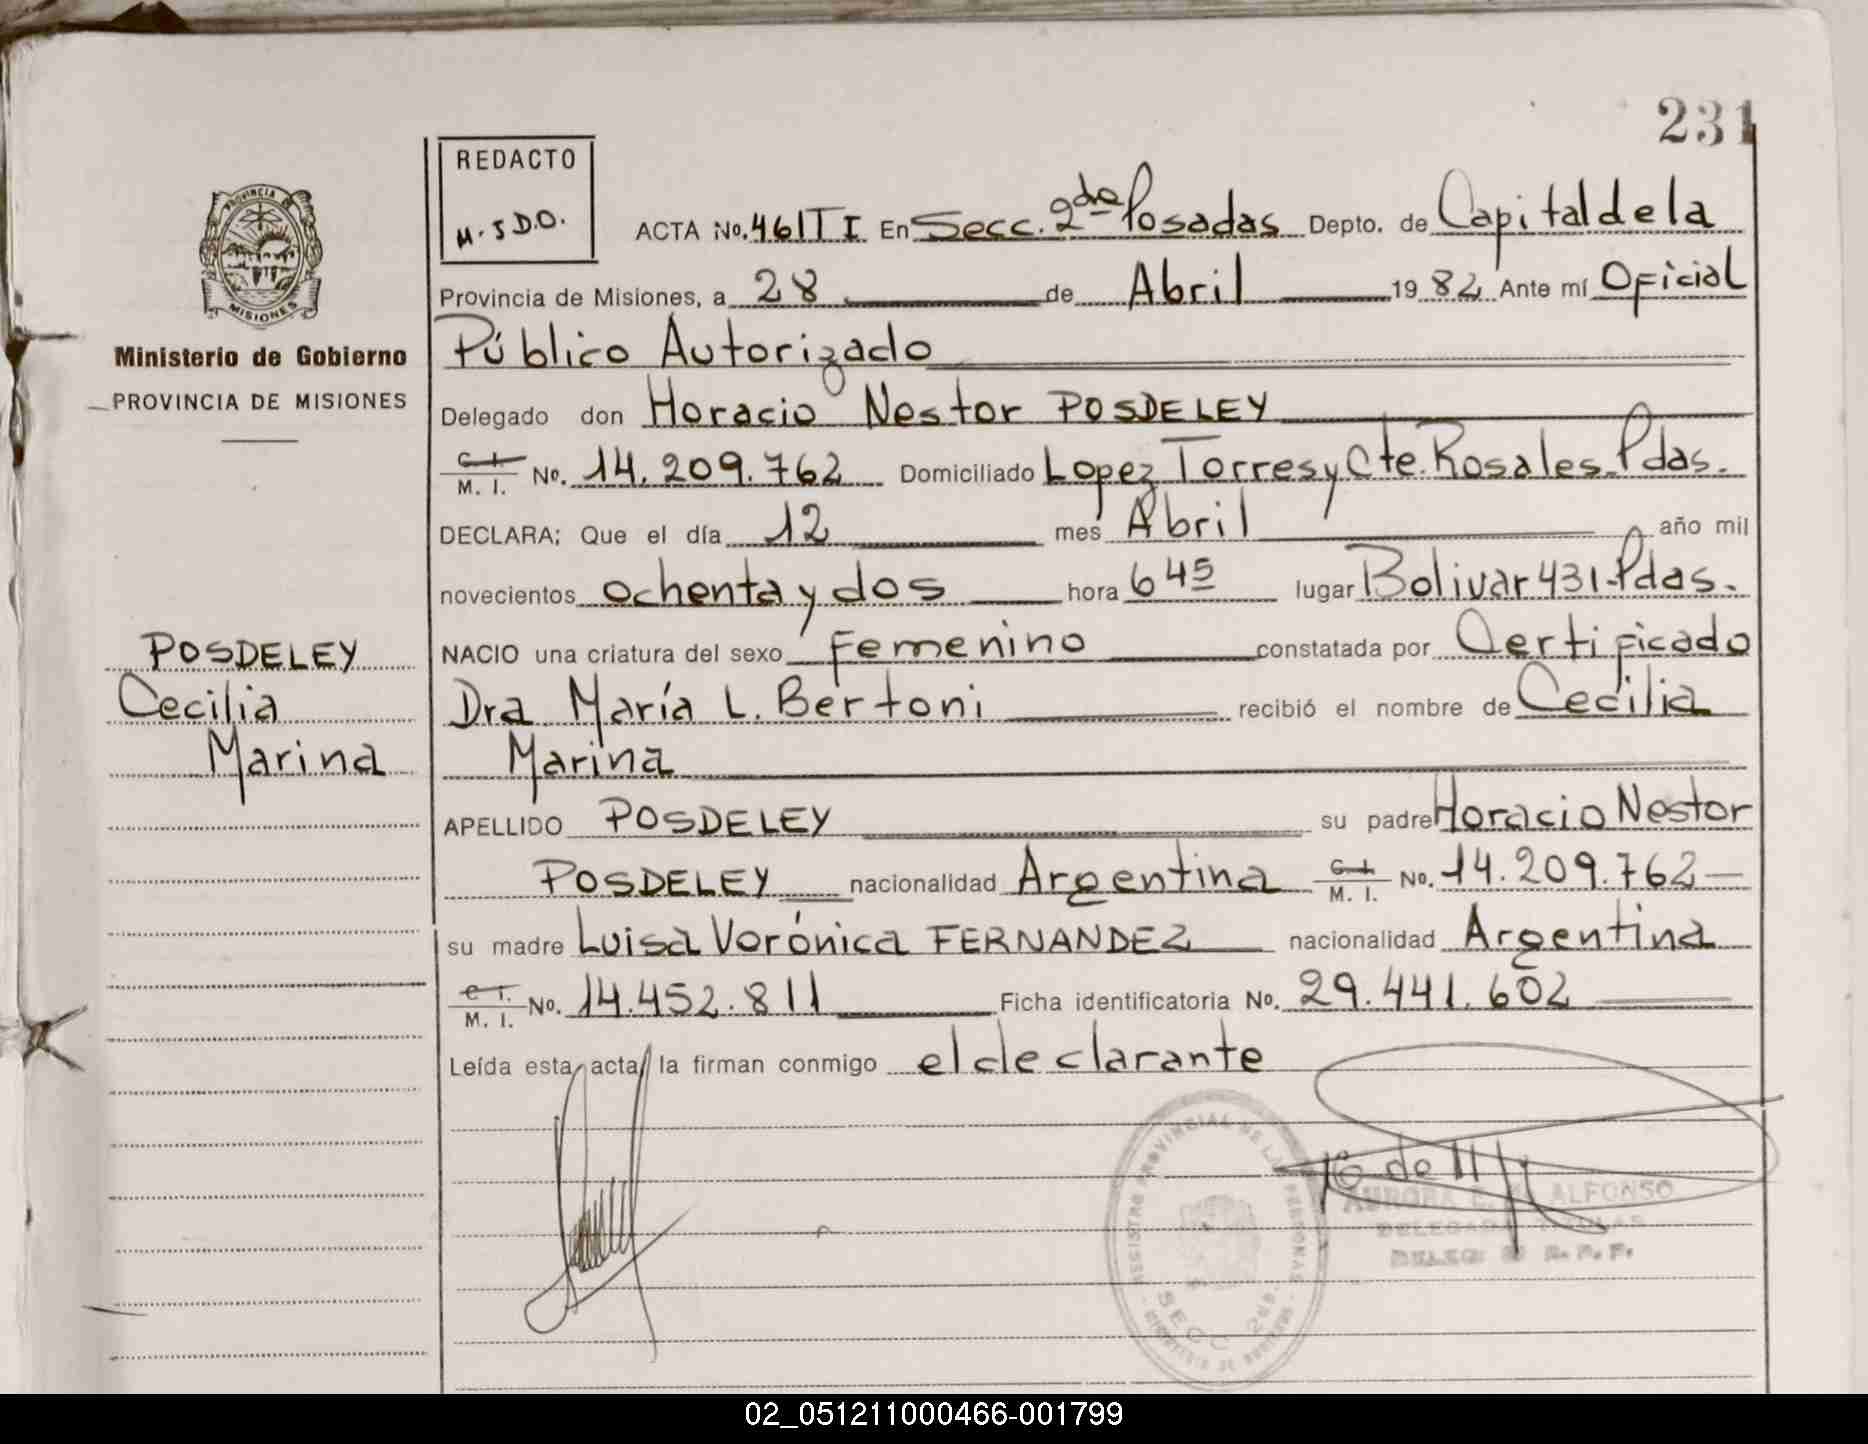 231
REDACTO
M.S D.O.
ACTA No. 461 T I En Secc. 2da Posadas Depto. de Capital de la
Provincia de Misiones, a 28 de Abril 1982 Ante mí Oficial
Público Autorizado
Delegado don Horacio Nestor POSDELEY
C. I. M. I. No. 14.209.762 Domiciliado Lopez Torres y Cte. Rosales. Pdas.
DECLARA; Que el día 12 mes Abril año mil
novecientos ochenta y dos hora 6 45 lugar Bolivar 431-Pdas.
NACIO una criatura del sexo femenino constatada por Certificado
Dra María L. Bertoni recibió el nombre de Cecilia
Marina
APELLIDO POSDELEY su padre Horacio Nestor
POSDELEY nacionalidad Argentina C. I. M. I. No. 14.209.762
su madre Luisa Verónica FERNANDEZ nacionalidad Argentina
C. I. M. I. No. 14.452.811 Ficha identificatoria No. 29.441.602
Leída esta acta, la firman conmigo el declarante
PROVINCIA
MISIONES
Ministerio de Gobierno
PROVINCIA DE MISIONES
POSDELEY
Cecilia
Marina
REGISTRO PROVINCIAL DE LAS PERSONAS
SECC 2DA.
AURORA E. ALFONSO
DELEGADA TITULAR
02_051211000466-001799